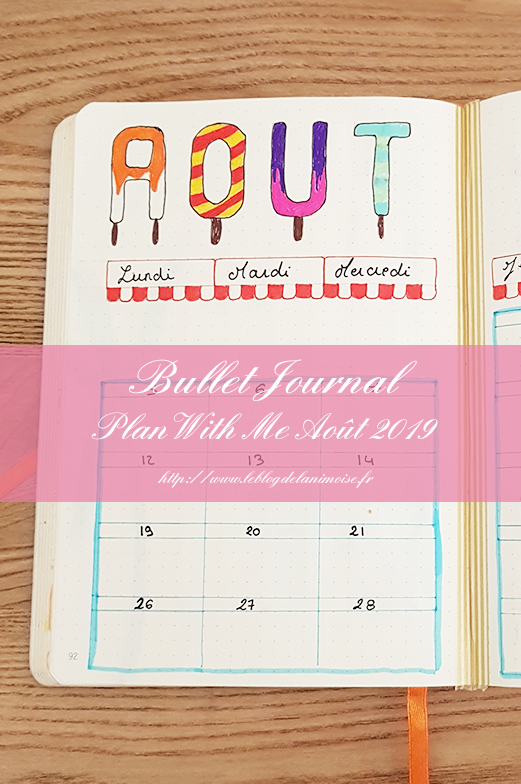 AOUT
Lundi Mardi Mercredi
Bullet Journal
Plan With Me Août 2019
12 13 14
http://www.leblogdelanimoise.fr
19 20 21
26 27 28
92